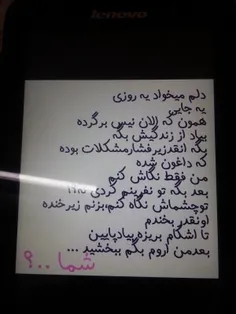 lenovo
دلم میخواد یه روزی
یه جایی
همون که الان نیس برگرده
بیاد از زندگیش بگه
بگه انقدرزیرفشارمشکلات بوده
که داغون شده
من فقط نگاش کنم
بعد بگه تو نفرینم کردی نه؟؟
توچشماش نگاه کنم،بزنم زیرخنده
اونقدر بخندم
تا اشکام بریزه بیادپایین
بعدمن آروم بگم ببخشید ...
شما ..؟